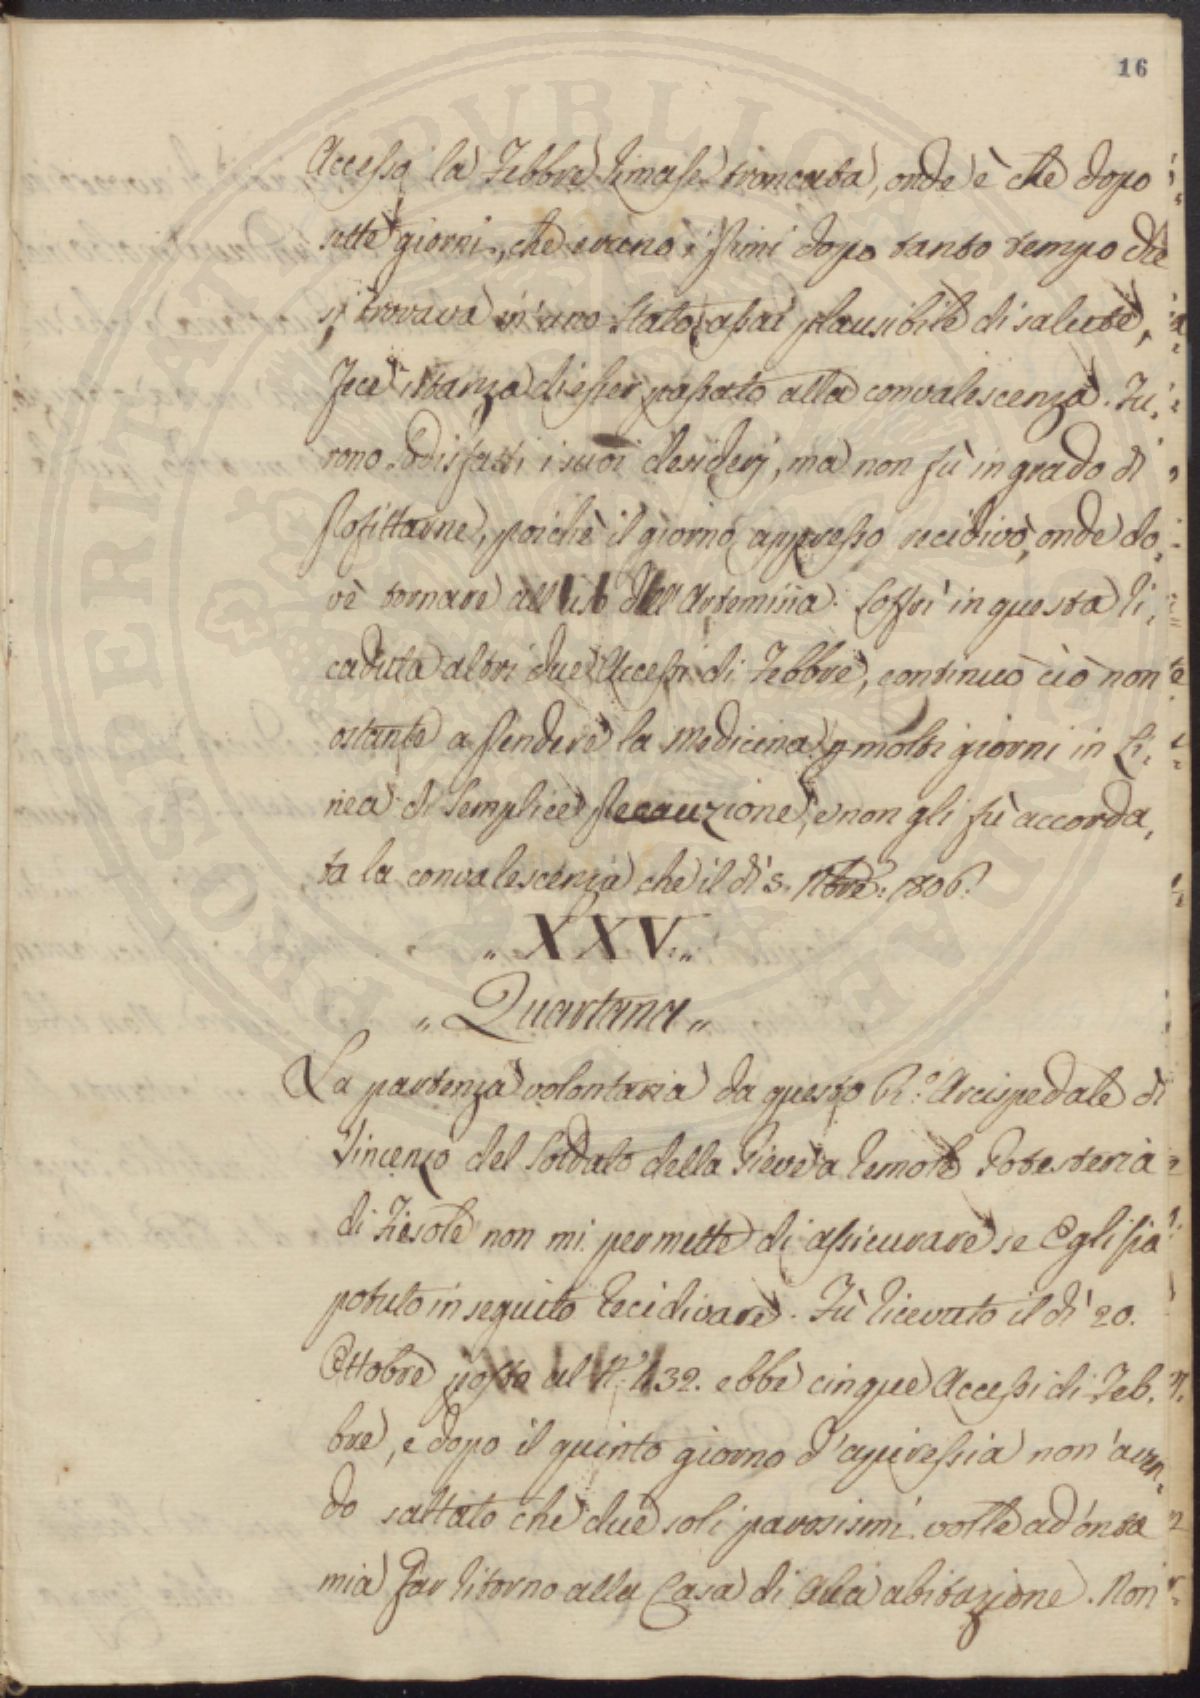 16
Accesso la Febbre rimase troncata, onde è che dopo
sette giorni, che erano i primi dopo tanto tempo che
si trovava in uno Stato assai plausibile di salute,
fece istanza di esser passato alla convalescenza. Fu,
rono sodisfatti i suoi desiderj, ma non fù in grado di
profittarne, poichè il giorno appresso recidivò, onde do,
vè tornare all'uso dell'Artemisia. Soffrì in questa ri,
caduta altri due Accessi di Febbre, continuò ciò non
ostante a prendere la Medicina p molti giorni in Li,
nea di Semplice precauzione, e non gli fù accorda,
ta la convalescenza che il dì 5. Nbre: 1806.
„ XXV. „
„ Quartana „
La partenza volontaria da questo R.° Arcispedale di
Vincenzo del Soldato della Pieve a Remole Potesteria
di Fiesole non mi permette di assicurare se Egli sia
potuto in seguito recidivare. Fù ricevuto il dì 20.
Ottobre posto al N.° 432. ebbe cinque Accessi di Feb.
bre, e dopo il quinto giorno d'apiressia non aven,
do saltato che due soli parosismi volle ad onta
mia far ritorno alla Casa di sua abitazione. Non
PROSPERITATI PUBLICAE AUGENDAE